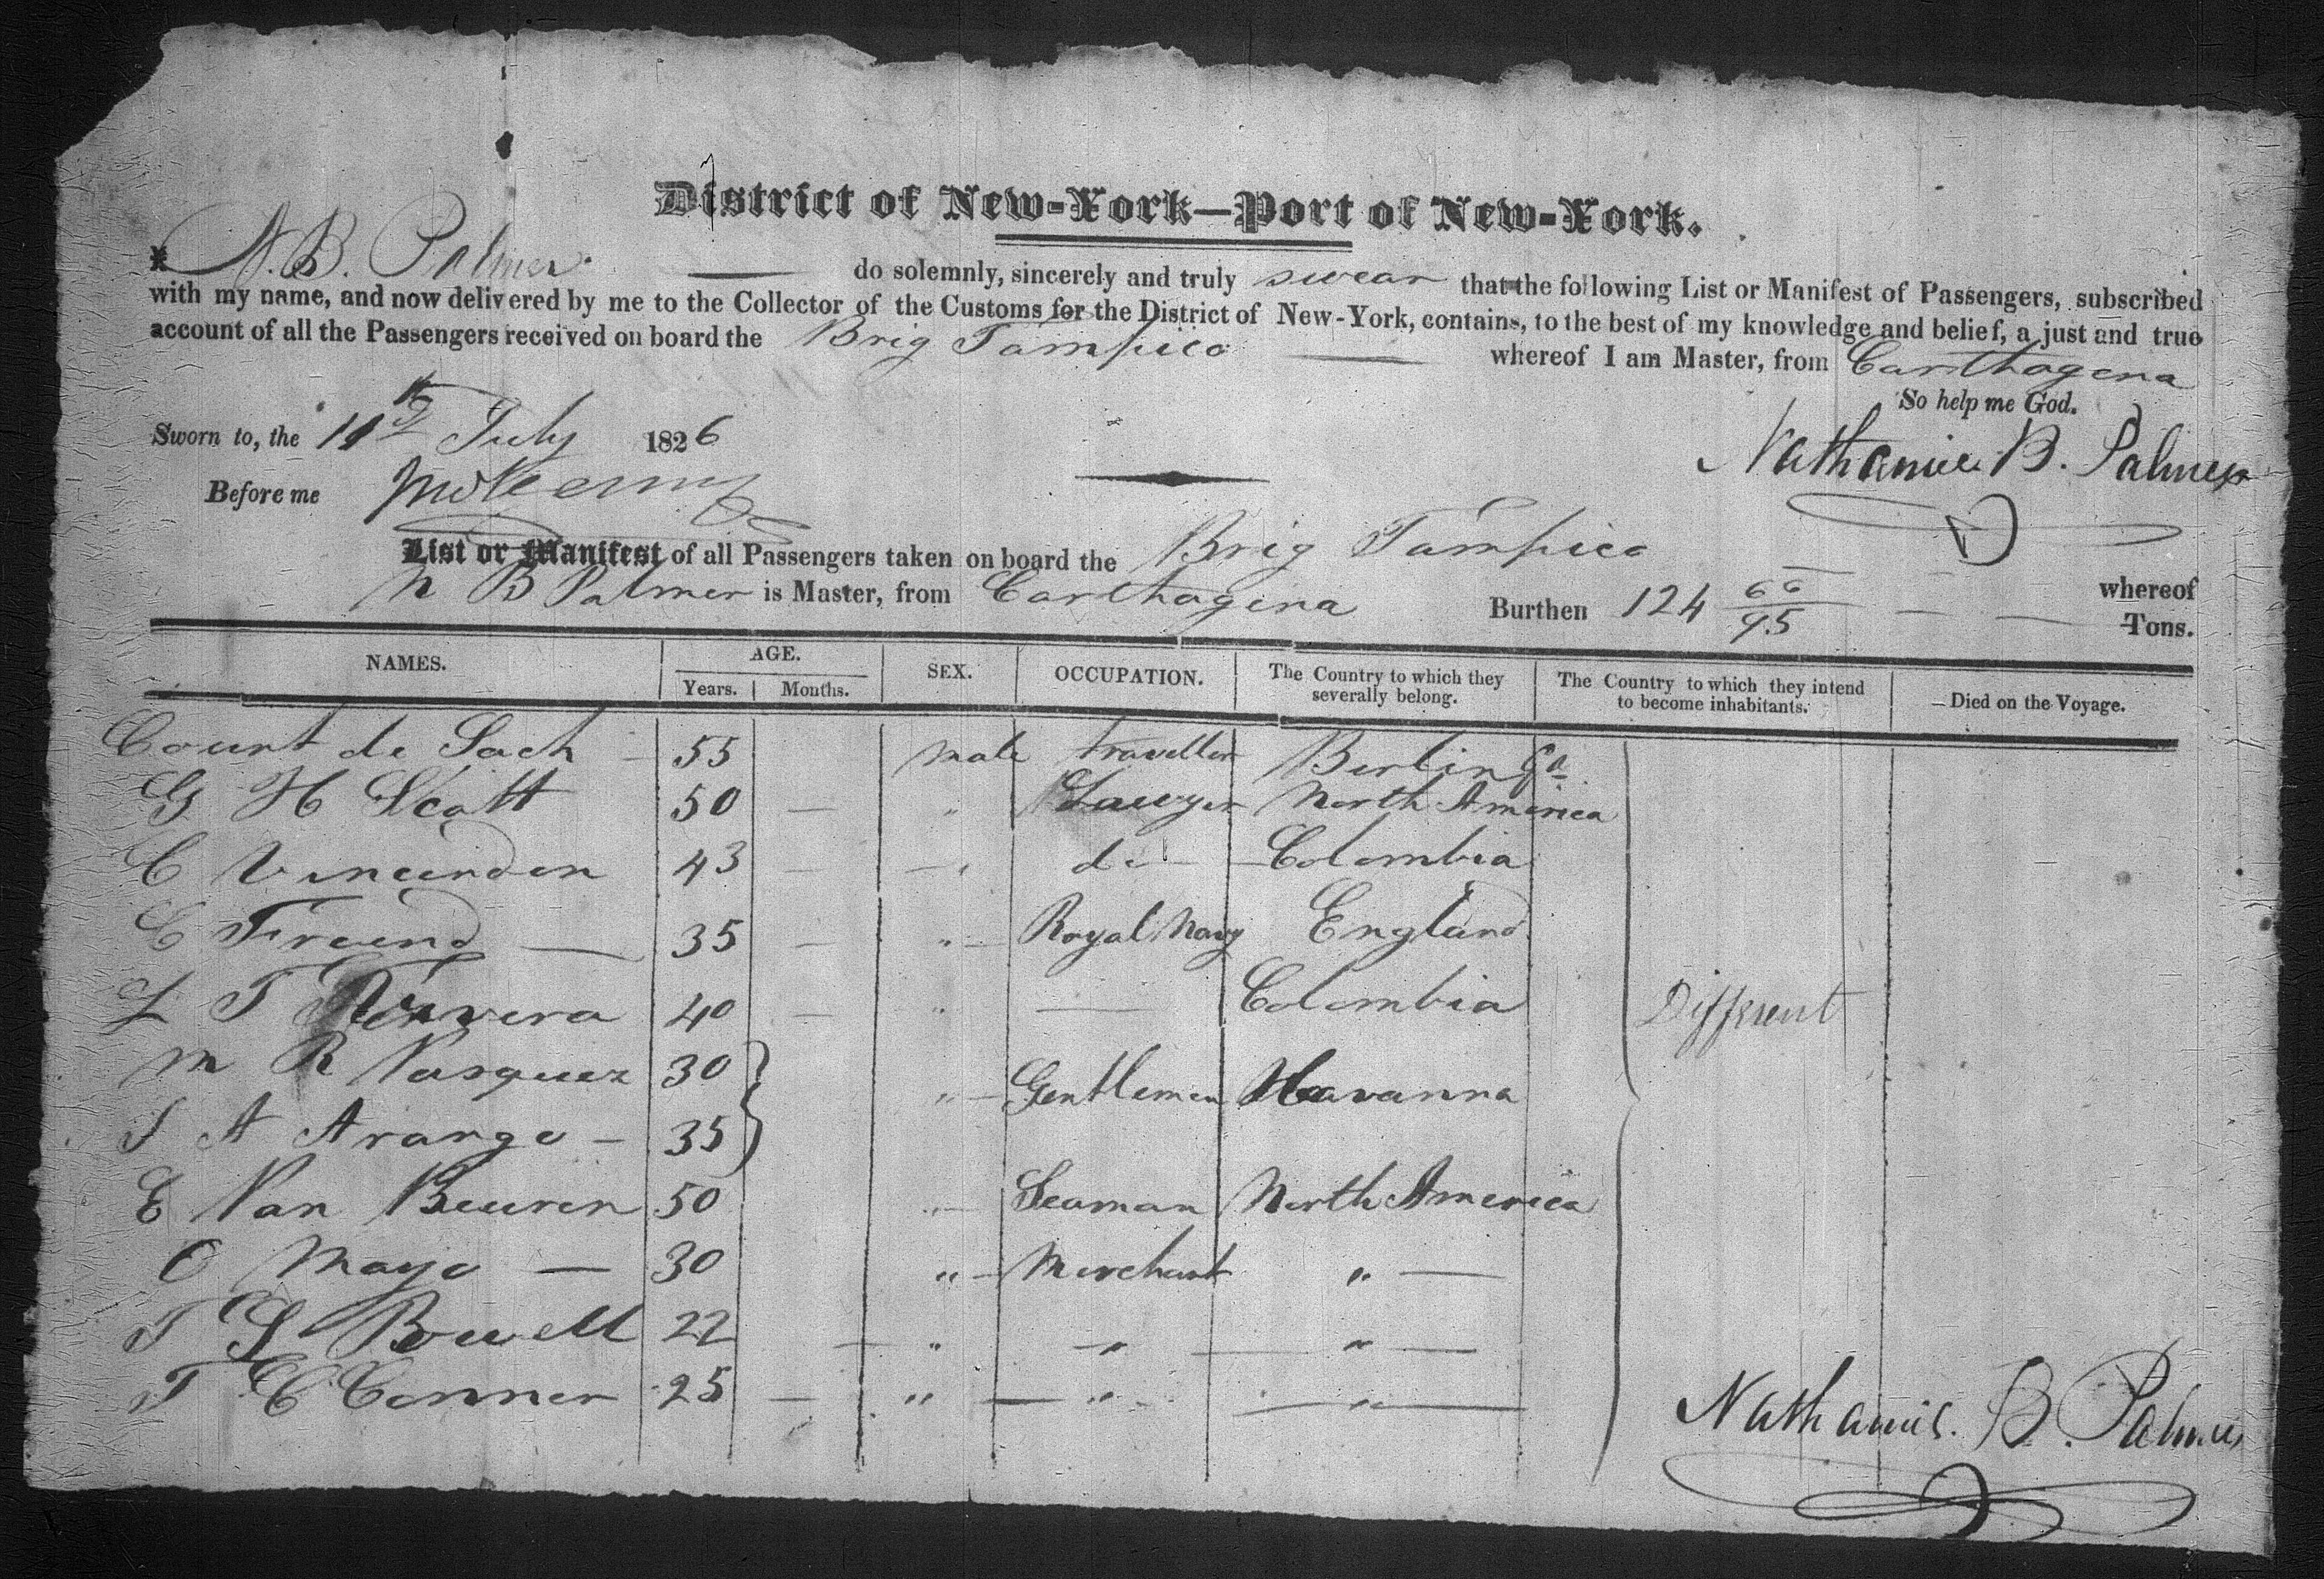 District of New-York—Port of New-York.
I N. B. Palmer do solemnly, sincerely and truly swear that the following List or Manifest of Passengers, subscribed
with my name, and now delivered by me to the Collector of the Customs for the District of New-York, contains, to the best of my knowledge and belief, a just and true
account of all the Passengers received on board the Brig Tampico whereof I am Master, from Carthagena
So help me God.
Sworn to, the 11th July 1826
Nathaniel B. Palmer
Before me
List or Manifest of all Passengers taken on board the Brig Tampico whereof
N B Palmer is Master, from Carthagena Burthen 124 66/95 Tons.
NAMES. AGE. Years. Months. SEX. OCCUPATION. The Country to which they severally belong. The Country to which they intend to become inhabitants. Died on the Voyage.
Count de Sach 55 male traveller Berlin
G H Scott 50 — " Lawyer North America
C 43 — " do — Colombia
C Freund — 35 — " Royal Navy England
L T 40 — " — Colombia
M R Vasquez 30
" Gentlemen Havanna
J A Arango — 35
Different
E Van Beuren 50 " Seaman North America
O Mayo — 30 " Merchant " —
T S Bowell 22 — " " — " —
T C Connor 25 — " — " — " —
Nathaniel B. Palmer